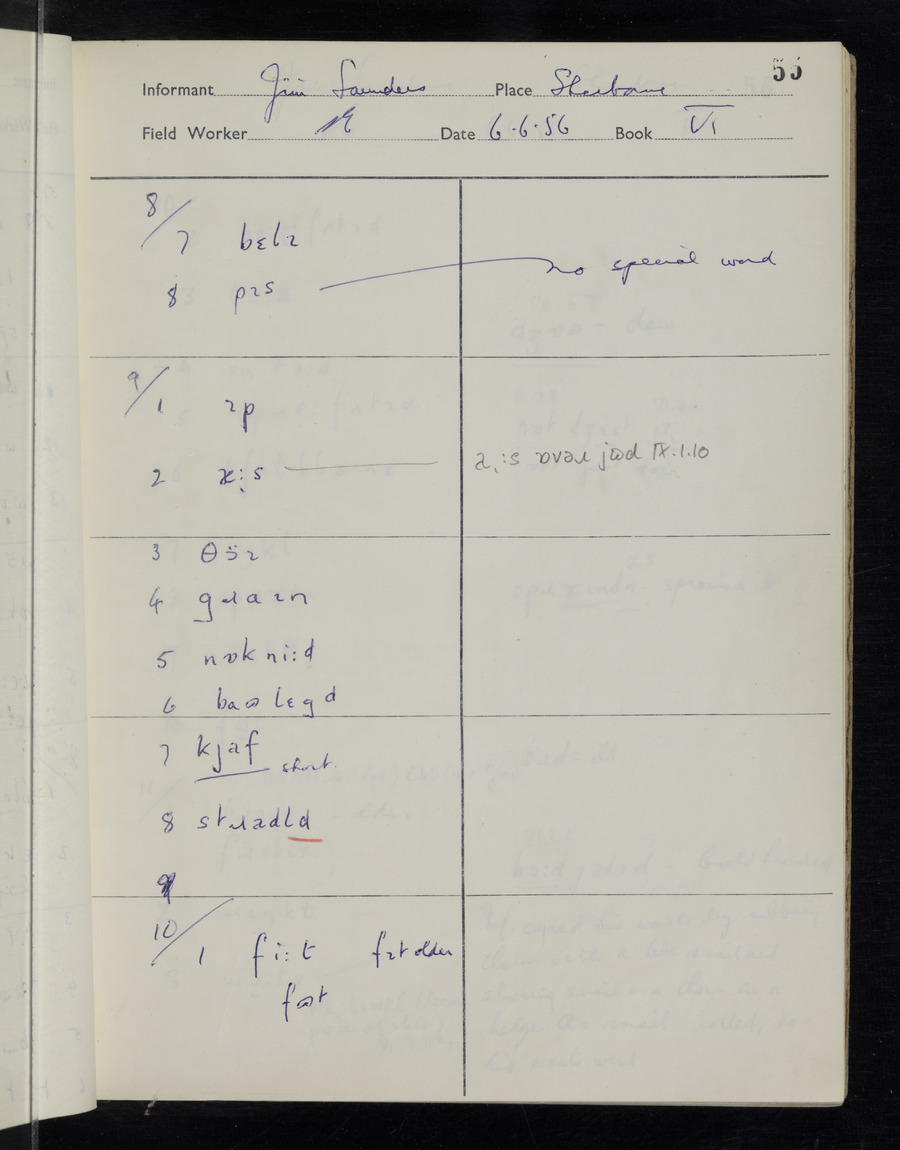 55
Informant Jim Saunders Place Sherborne
Field Worker Date 6·6·56 Book VI
8/
7 bɛlɪ no special word
8 pɪs
9/
1 ɪp
2 ɪ̨:s ə̨:s ɒvəɹ jɒd IX.1.10
3 θɔ̈ɪ
4 gɹaɪn
5 nɒk ni:d
6 baɷ lɛgd
7 kjaf short
8 stɹadld
10/
1 fi:t fɪt older
fɷt